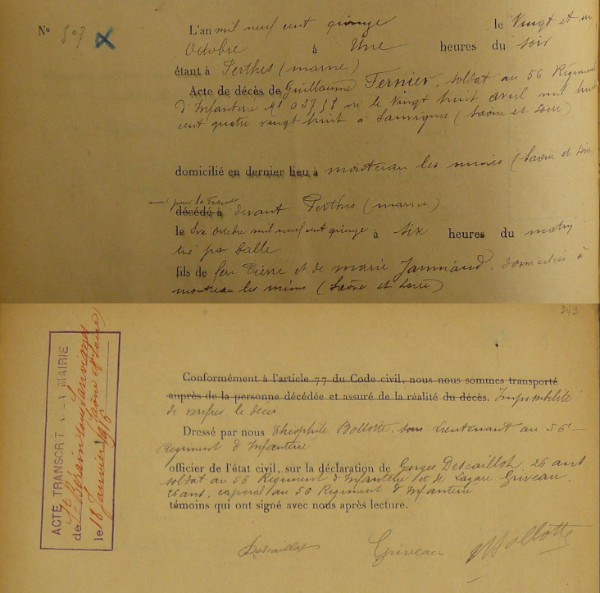 N° 507 X
L'an mil neuf cent quinze le Vingt et un
Octobre à Une heures du soir
étant à Perthes (marne)
Acte de décès de Guillaume Fernier, soldat au 56 Régiment
d'Infanterie né le Vingt huit avril mil huit
cent quatre vingt huit à Sanvignes (Saone et Loire)
domicilié en dernier lieu à montceau les mines (Saone et Loire
mort pour la France
décédé à devant Perthes (marne)
le Six octobre mil neuf cent quinze à six heures du matin
tué par balle
fils de feu Pierre et de marie Janniaud, domiciliés à
montceau les mines (Saône et Loire)
243
Conformément à l'article 77 du Code civil, nous nous sommes transporté
auprès de la personne décédée et assuré de la réalité du décès. Impossibilité
de verifier le deces
Dressé par nous Théophile Bollotte, sous Lieutenant au 56e
Regiment d'Infanterie
officier de l'état civil, sur la déclaration de Georges Descaillot, 26 ans
soldat au 56 Regiment d'Infanterie et de Lazare Griveau,
26 ans, caporal au 50 Regiment d'Infanterie
témoins qui ont signé avec nous après lecture.
Descaillot Griveau Bollotte
ACTE TRANSCRIT A LA MAIRIE
de St Berain sous Sanvignes
Saône et Loire
le 18 Janvier 1916